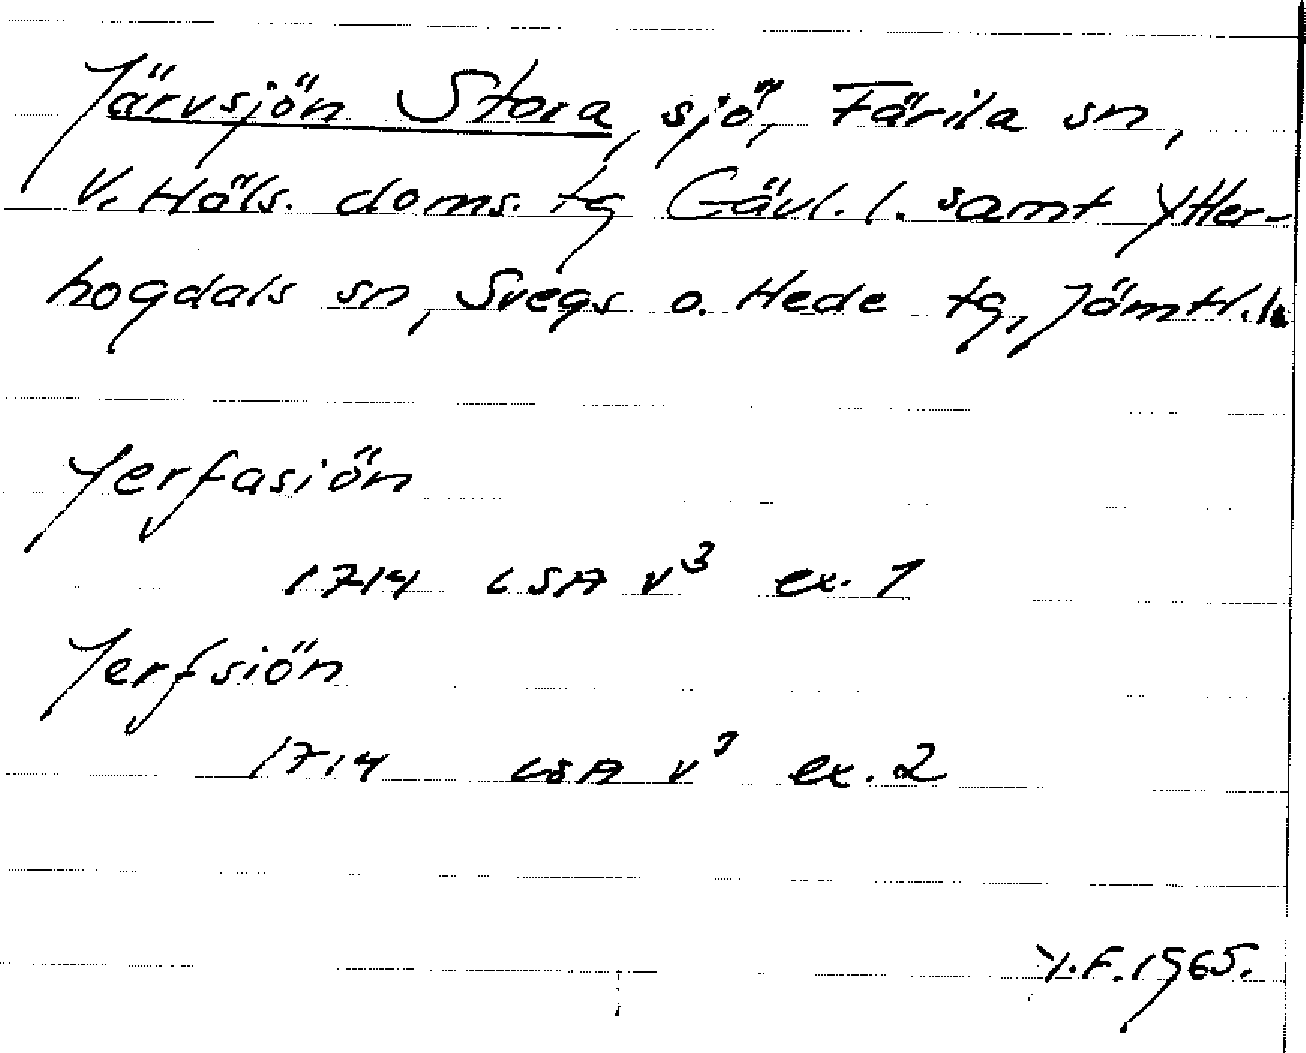 Järvsjön Stora, sjö, Färila sn,
V. Häls. doms. tg Gävl. l. samt Ytter-
hogdals sn, Svegs o. Hede tg, Jämtl. l.
Jerfasiön
1714 LSA v³ ex. 1
Jerfsiön
1714 LSA v³ ex. 2
Y.F. 1965.